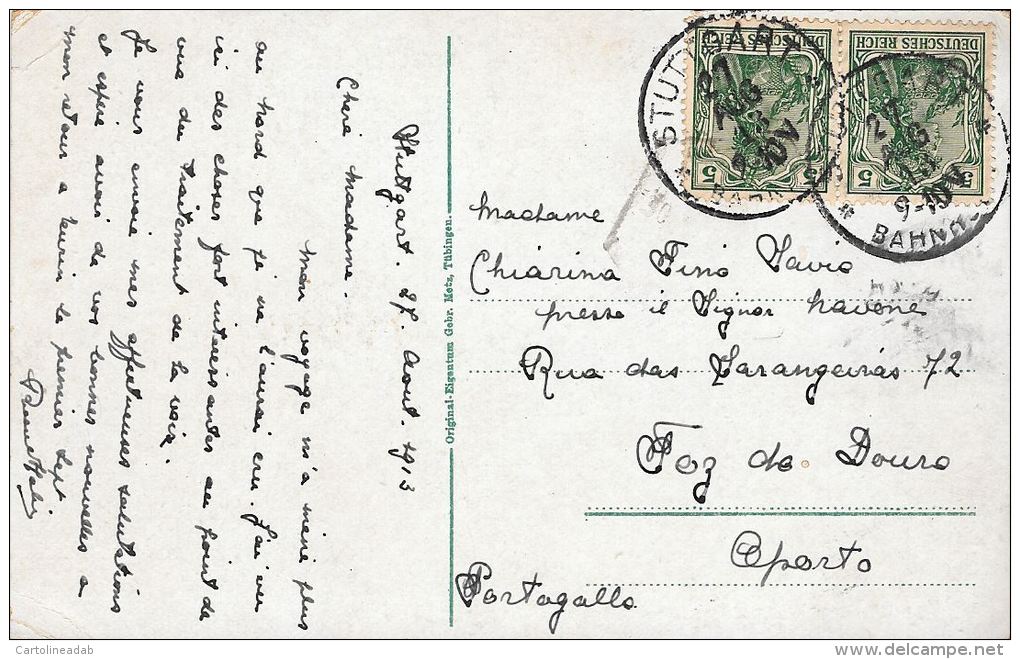 Stuttgart. 27. Aout. 1913
Chère Madame.
Mon voyage m'a mené plus
au Nord que je ne l'aurai cru. J'ai vu
ici des choses fort interessantes au point de
vue du traitement de la voix.
Je vous envoie mes affectueuses salutations
et espère avoir de vos bonnes nouvelles a
mon retour a Turin le premier Sept
Original-Eigentum Gebr. Metz, Tübingen.
DEUTSCHES REICH
5
DEUTSCHES REICH
5
STUTTGART
27
AUG
13
9-10V
BAHNH
27
AUG
9-10V
BAHNH
Madame
Chiarina Fino Savio
presso il Signor Navone
Rua das Larangeiras 72
Foz do Douro
Oporto
Portogallo
Cartolineadab
delcampe.net